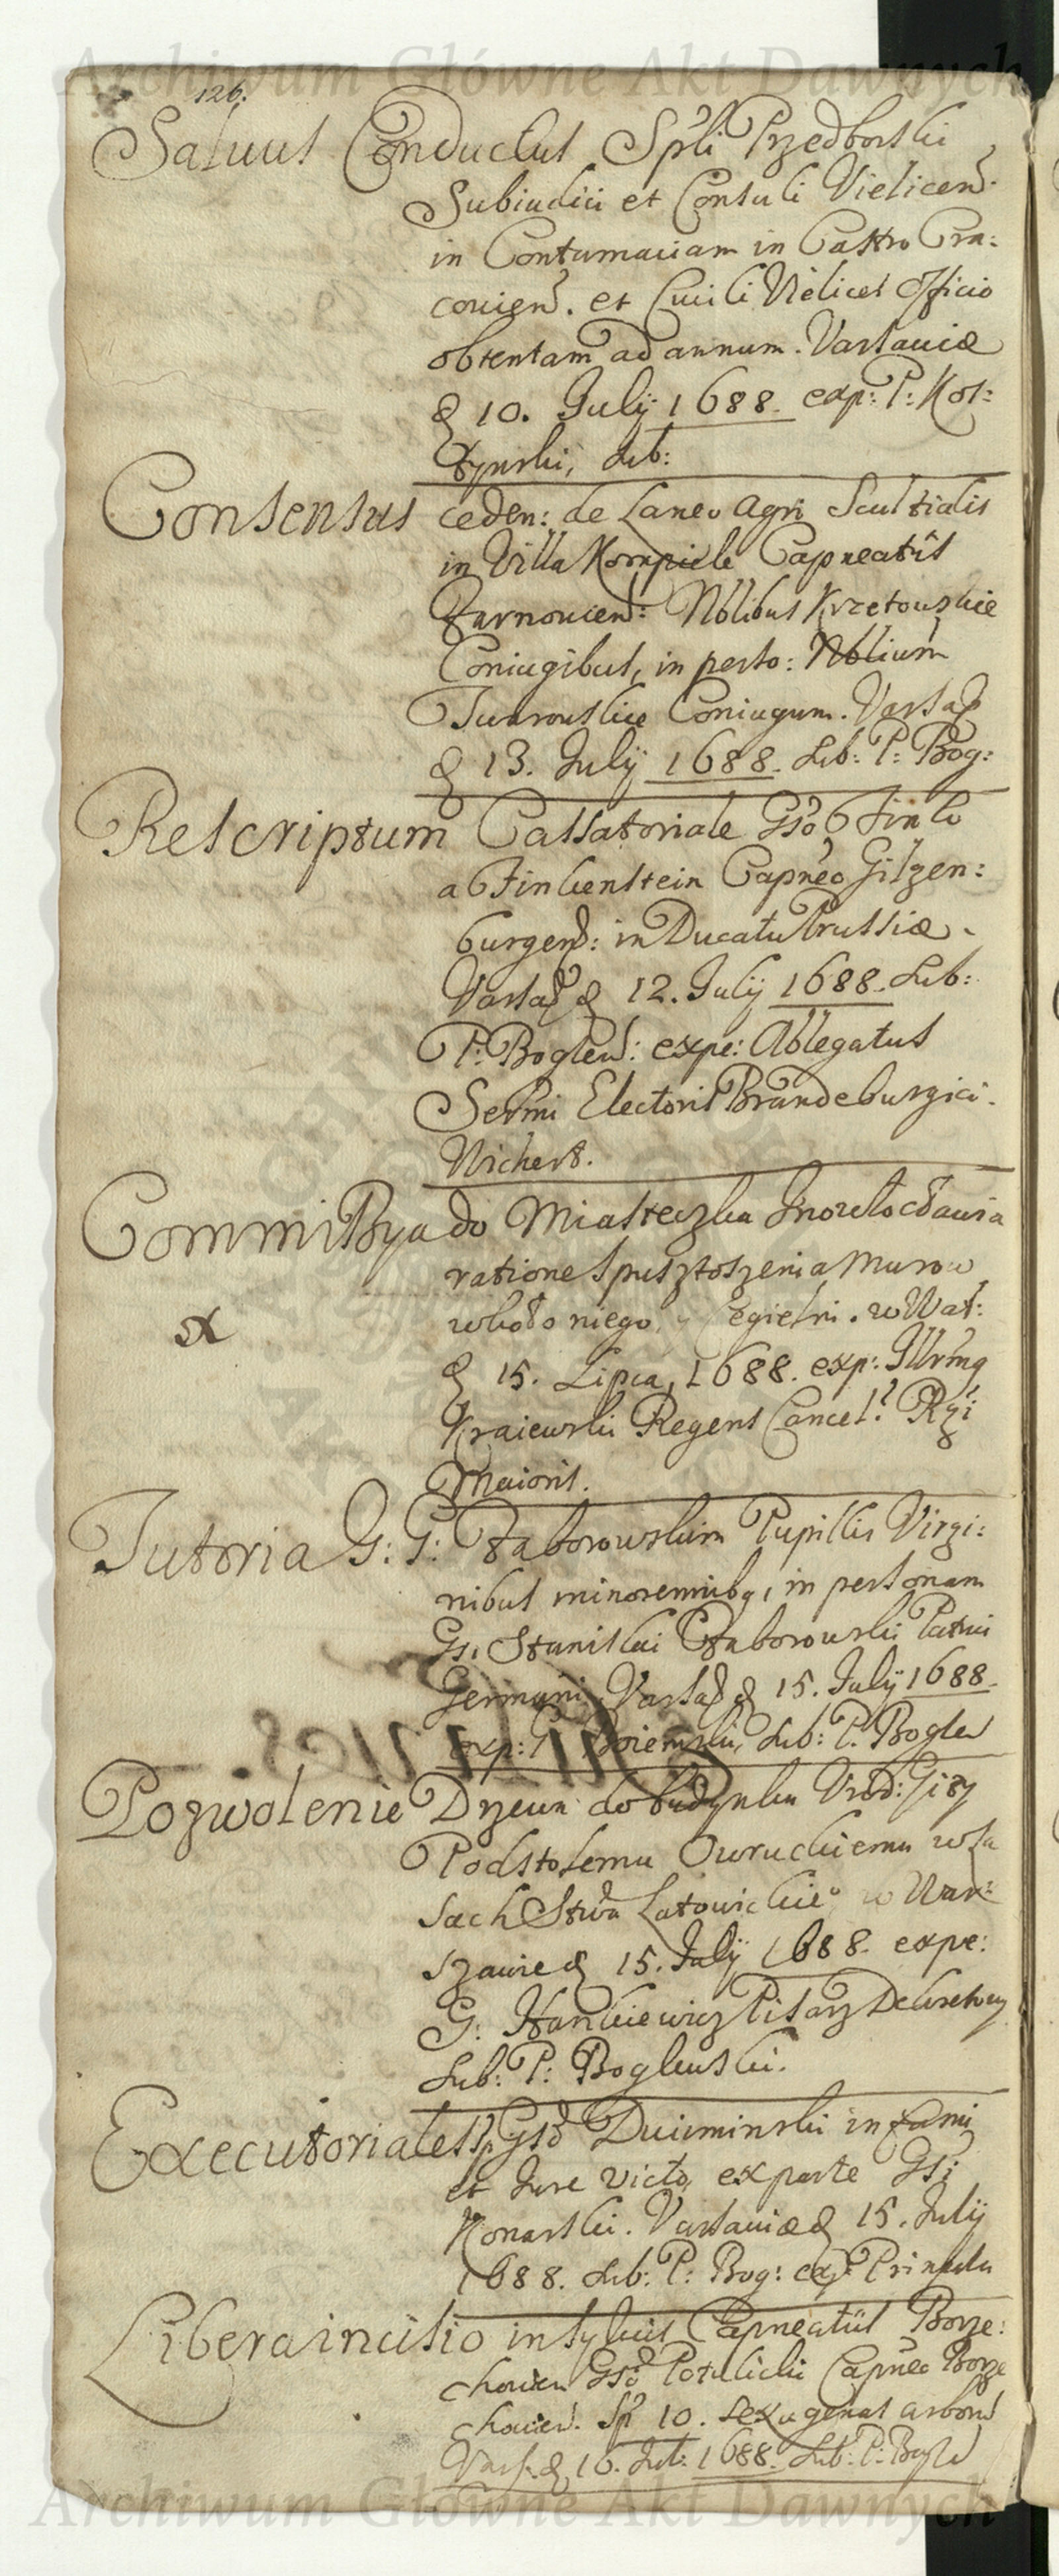 Archiwum Główne Akt Dawnych
126.
Salvus Conductus Spli Przedborski
Subiudici et Consuli Vielicen.
in Contumaciam in Castro Cra:
covien. et Civili Vielicen Officio
obtentam ad annum. Varsaviæ
d 10. July 1688. exp: P: Kos:
tynski, sub:
Consensus ceden: de Laneo agri Scultialis
in Villa Kompiele Capneatus
Zarnovien: Nblibus Krzetouskie
Coniugibus, in perso: Nblium
Turowskie Coniugum. Varsa
d 13. July 1688. sub: P: Bog:
Rescriptum Cassatoriale Gso Fink
a Finkenstein Capneo Gilgen:
burgen: in Ducatu Prussiæ.
Varsa d 12. July 1688. sub:
P: Boglew: expe: Ablegatus
Sermi Electoris Brandeburgici.
Wichert.
Commissya do Miasteczka Inowłocławia
ratione spusztoszenia Murow
wkoło niego, y Cegielni. w War:
d 15. Lipca, 1688. exp: Illrmg
Kraiewski Regens Cancel: Rgi
Maioris.
Tutoria G: G: Zaborowskim Pupillis Virgi:
nibus minorennibq, in personam
Gsi Stanislai Zaborowski Patrui
Germani. Varsa d 15. July 1688.
exp: P Boiemski, sub: P. Boglew
Pozwolenie Drzewa do budynku Urod: Gizy
Podstolemu Owruckiemu w la
sach Stwa Latowickieo w War:
szawie d 15. July 1688. expe:
G: Hankiewicz Pisarz Dekretowy
sub: P: Boglewski.
Executoriales sp Gso Duiminski infami
et Jure victo, ex parte Gsi
Konarski. Varsaviæ d 15. July
1688. sub: P: Bog: exp:
Libera incisio in sylvis Capneatus Borze:
chovien Gso Potulicki Capneo Borze
chovien. sp 10. sexagenas arbom
Vars. d 16. Jul: 1688. sub: P: Bogle
Archiwum Główne Akt Dawnych